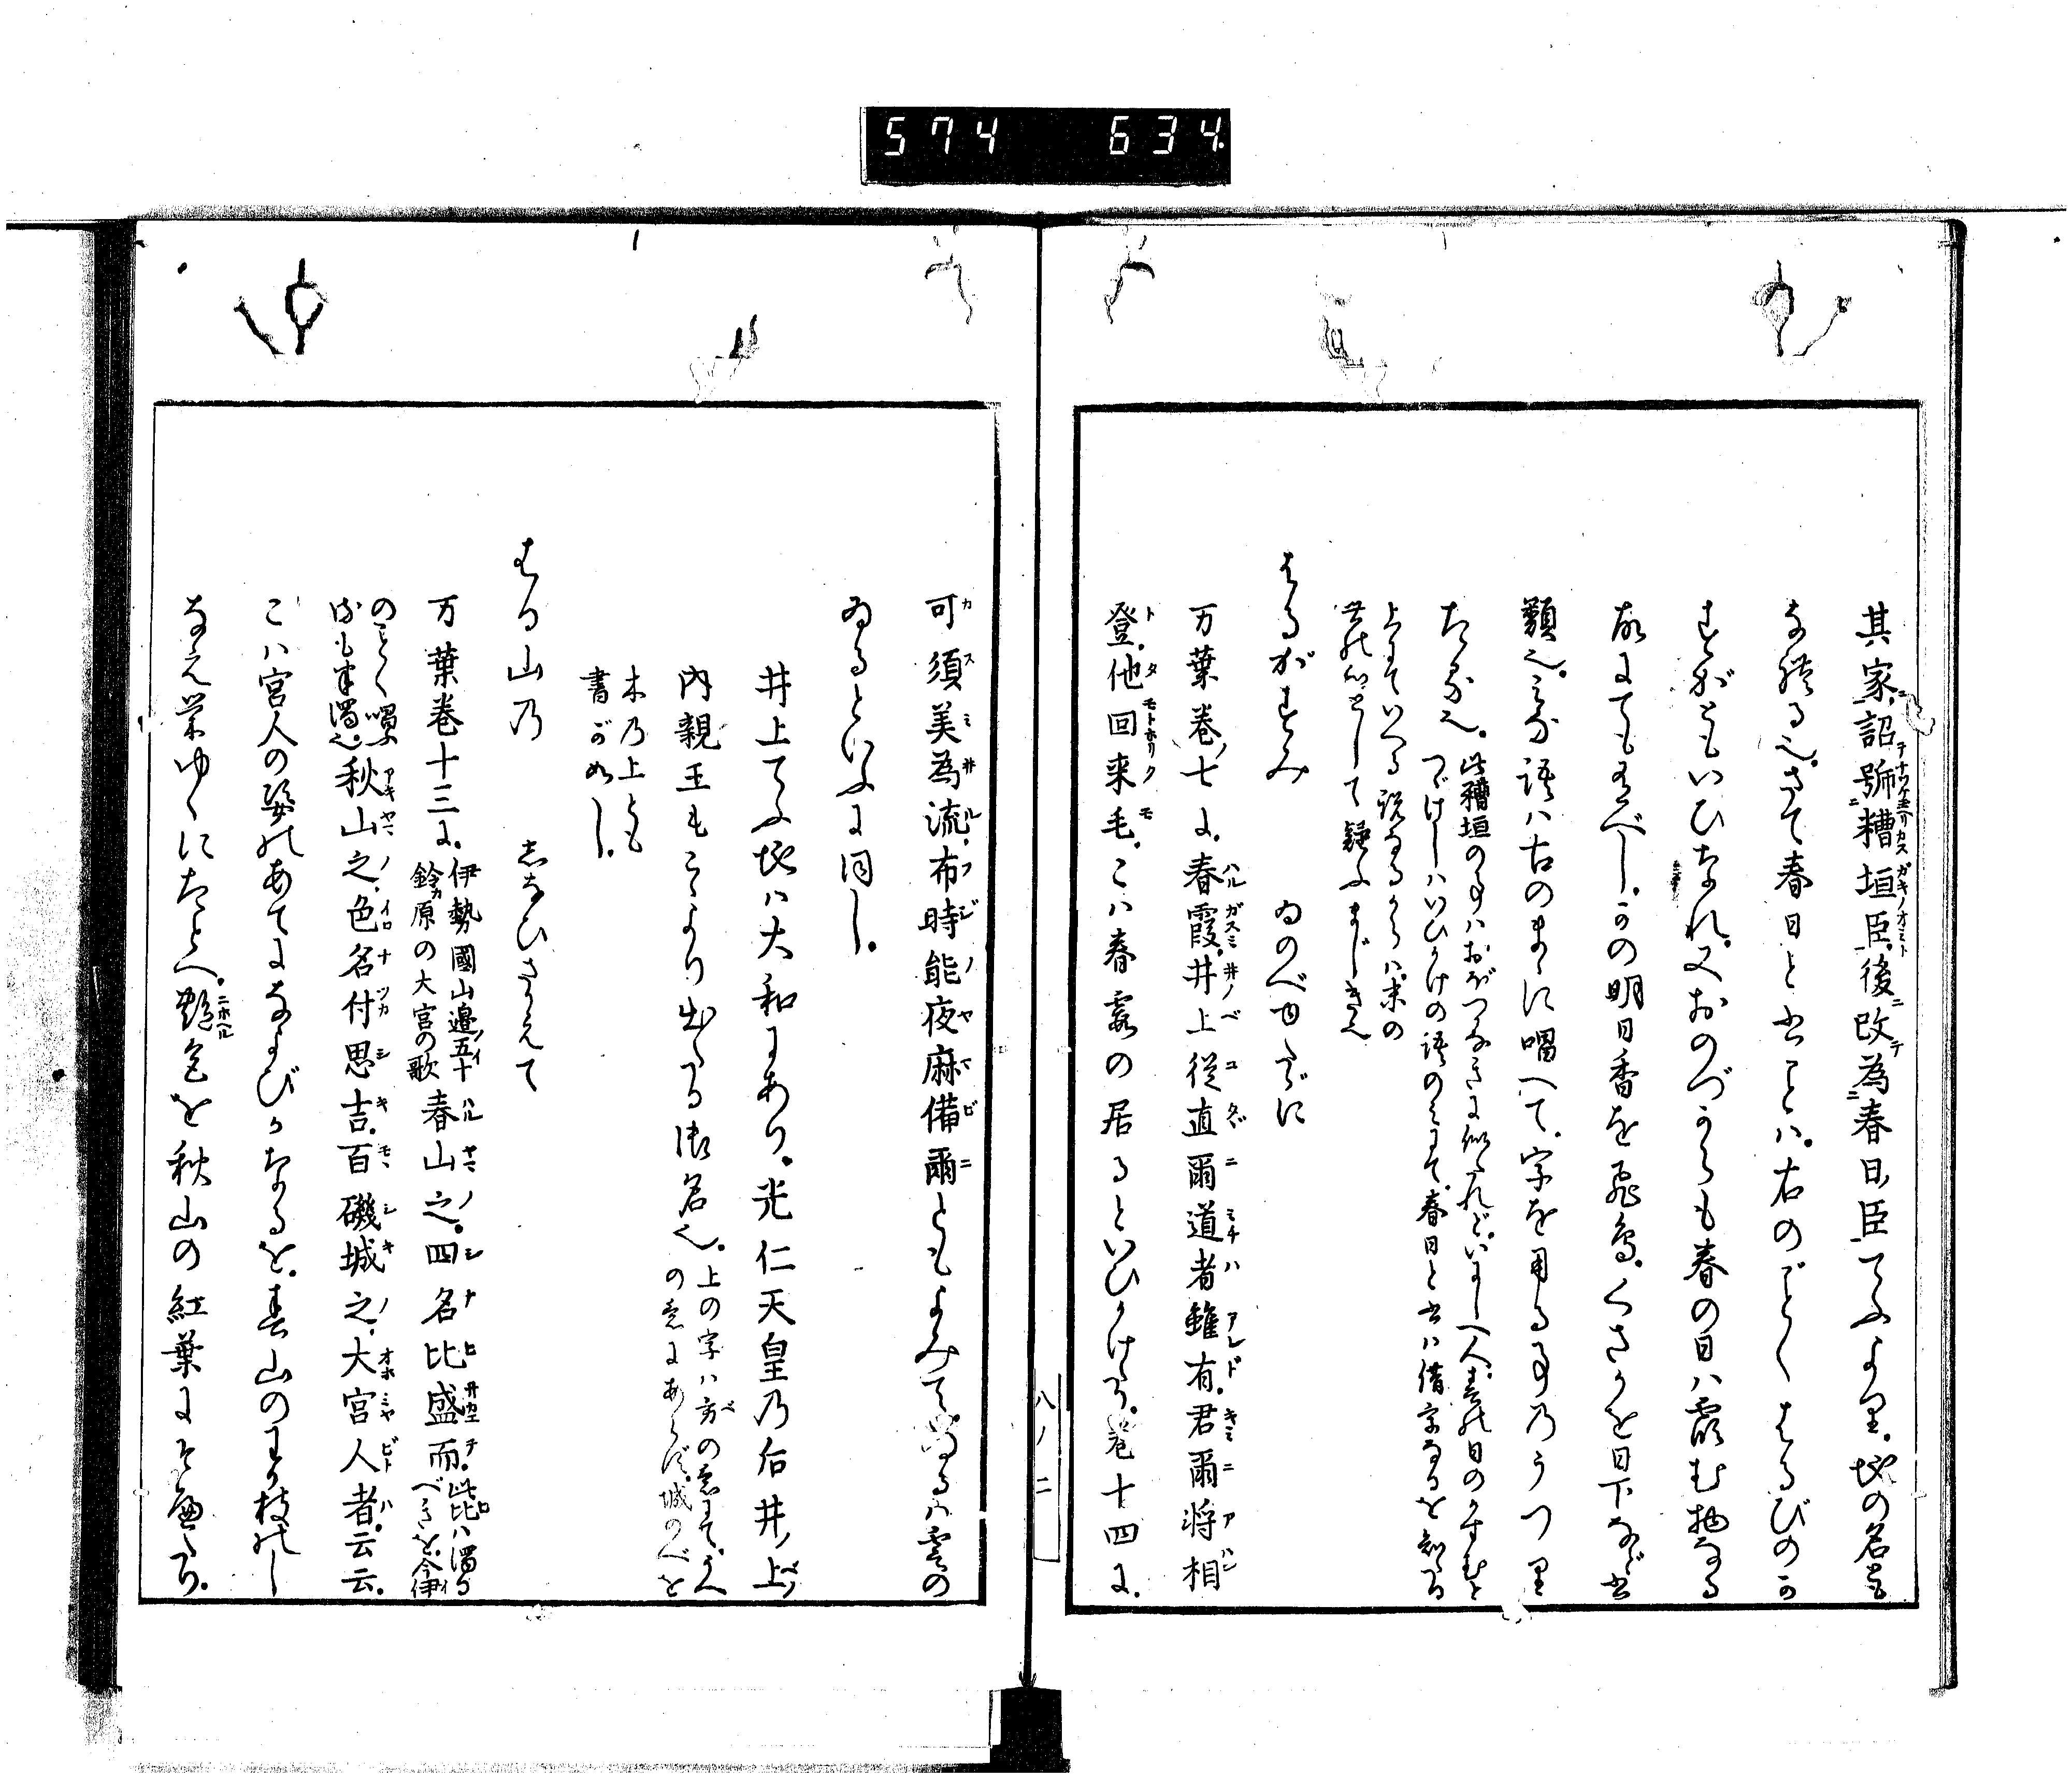 574 634
其家詔號糟垣臣後改為春日臣てふより地の名も
なれる也さて春日と書ことは右のごとくはるびのか
すがともいひなれ又おのづからも春の日は霞む物なる
故にても有べしかの明日香を飛鳥くさかを日下など書
類也これら語は古のまゝに唱へて字を用る事のうつり
たる也
此糟垣の事はおぼつかなきに似たれどいにしへ人春の日のかすむと
つゞけしはいひかけの語のみにて春日と書は借字なるを知る
上にていへる説なるからは末の
世の心をして疑ふまじき也
はるがすみ ゐのべゆたゞに
万葉巻ノ七に春霞井上従直爾道者雖有君爾将相
登他回来毛こは春霞の居るといひかけたり巻十四に
八ノ二
可須美為流布時能夜麻備爾ともよみて居るは雲の
ゐるといふに同し
井上てふ地は大和にあり光仁天皇乃后井ノ上ノ
内親王もこゝより出たる御名也
上の字は方の意にてうへ
の意にあらず城のべを
木乃上とも
書がめし
はる山乃 しなひさかえて
万葉巻十三に
伊勢國山邊ノ五十
鈴原の大宮の歌
春山之四名比盛而
此比は濁る
べきを今伊
のごとく唱ふ
秋山之色名付思吉百磯城之大宮人者云云
こは宮人の姿のあてになよびかなるを春山のわか枝のし
なえ栄ゆくにたとへ艶色を秋山の紅葉にそへたり